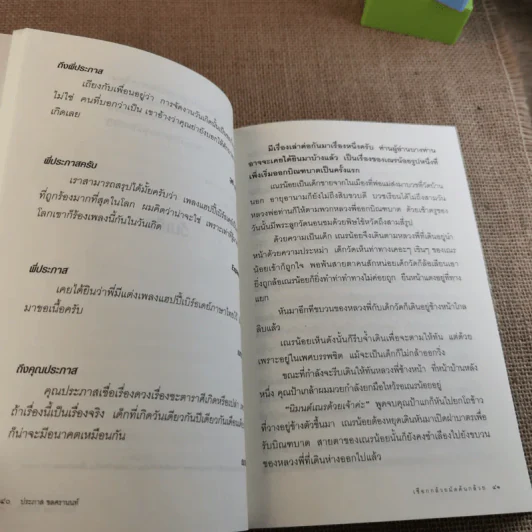 ถึงพี่ประภาส
เถียงกับเพื่อนอยู่ว่า การจัดงานวันเกิดนั้นเป็น
ไม่ใช่ คนที่บอกว่าเป็น เขาอ้างว่าคุณย่ายังบอกให้
เกิดเลย
พี่ประภาสครับ
เราสามารถสรุปได้มั้ยครับว่า เพลงแฮปปี้เบิร์ธเดย์
ที่ถูกร้องมากที่สุดในโลก ผมคิดว่าน่าจะใช่ เพราะ
โลกเขาก็ร้องเพลงนี้กันในวันเกิด
พี่ประภาส
เคยได้ยินว่าพี่มีแต่งเพลงแฮปปี้เบิร์ธเดย์ภาษาไทยไว้
มาขอเนื้อครับ
ถึงคุณประภาส
คุณประภาสเชื่อเรื่องดวงเรื่องชะตาราศีเกิดหรือเปล่า
ถ้าเรื่องนี้เป็นเรื่องจริง เด็กที่เกิดวันเดียวกันปีเดียวกันเดือน
ก็น่าจะมีอนาคตเหมือนกัน
๔๐ ประภาส ชลศรานนท์
มีเรื่องเล่าต่อกันมาเรื่องหนึ่งครับ ท่านผู้อ่านบางท่าน
อาจจะเคยได้ยินมาบ้างแล้ว เป็นเรื่องของเณรน้อยรูปหนึ่งที่
เพิ่งเริ่มออกบิณฑบาตเป็นครั้งแรก
เณรน้อยเป็นเด็กชายจากในเมืองที่พ่อแม่ส่งมาบวชที่วัดบ้าน
นอก อายุอานามก็ยังไม่ถึงสิบขวบดี บวชเรียนได้ไม่ถึงสามวัน
หลวงพ่อท่านก็ให้ตามพวกหลวงพี่ออกบิณฑบาต ด้วยเช้าตรู่ของ
วันนั้นมีพระลูกวัดนอนซมด้วยพิษไข้หวัดถึงสามสี่รูป
ด้วยความเป็นเด็ก เณรน้อยจึงเดินตามหลวงพี่ที่เดินอยู่นำ
หน้าด้วยความประหม่า เด็กวัดเห็นท่าทางเคอะๆ เขินๆ ของเณร
น้อยเข้าก็ถูกใจ พอพ้นสายตาคนสักหน่อยเด็กวัดก็ล้อเลียนเอา
ยิ่งถูกล้อเณรน้อยก็ยิ่งทำท่าทำทางไม่ค่อยถูก ยืนหน้าแดงอยู่ที่ทาง
แยก
หันมาอีกทีขบวนของหลวงพี่กับเด็กวัดก็เดินอยู่ข้างหน้าไกล
ลิบแล้ว
เณรน้อยเห็นดังนั้นก็รีบจ้ำเดินเพื่อจะตามให้ทัน แต่ด้วย
เพราะอยู่ในเพศบรรพชิต แม้จะเป็นเด็กก็ไม่กล้าออกวิ่ง
ขณะที่กำลังจะรีบเดินให้ทันหลวงพี่ข้างหน้า ที่หน้าบ้านหลัง
หนึ่ง คุณป้าเกล้าผมมวยกำลังยกมือไหว้รอเณรน้อยอยู่
“นิมนต์เณรด้วยเจ้าค่ะ” พูดจบคุณป้าแกก็หันไปยกโถข้าว
ที่วางอยู่ข้างตัวขึ้นมา เณรน้อยต้องหยุดเดินหันมาเปิดฝาบาตรเพื่อ
รับบิณฑบาต สายตาของเณรน้อยนั้นก็ยังคงชำเลืองไปยังขบวน
ของหลวงพี่ที่เดินห่างออกไปแล้ว
เชือกกล้วยมัดต้นกล้วย ๔๑